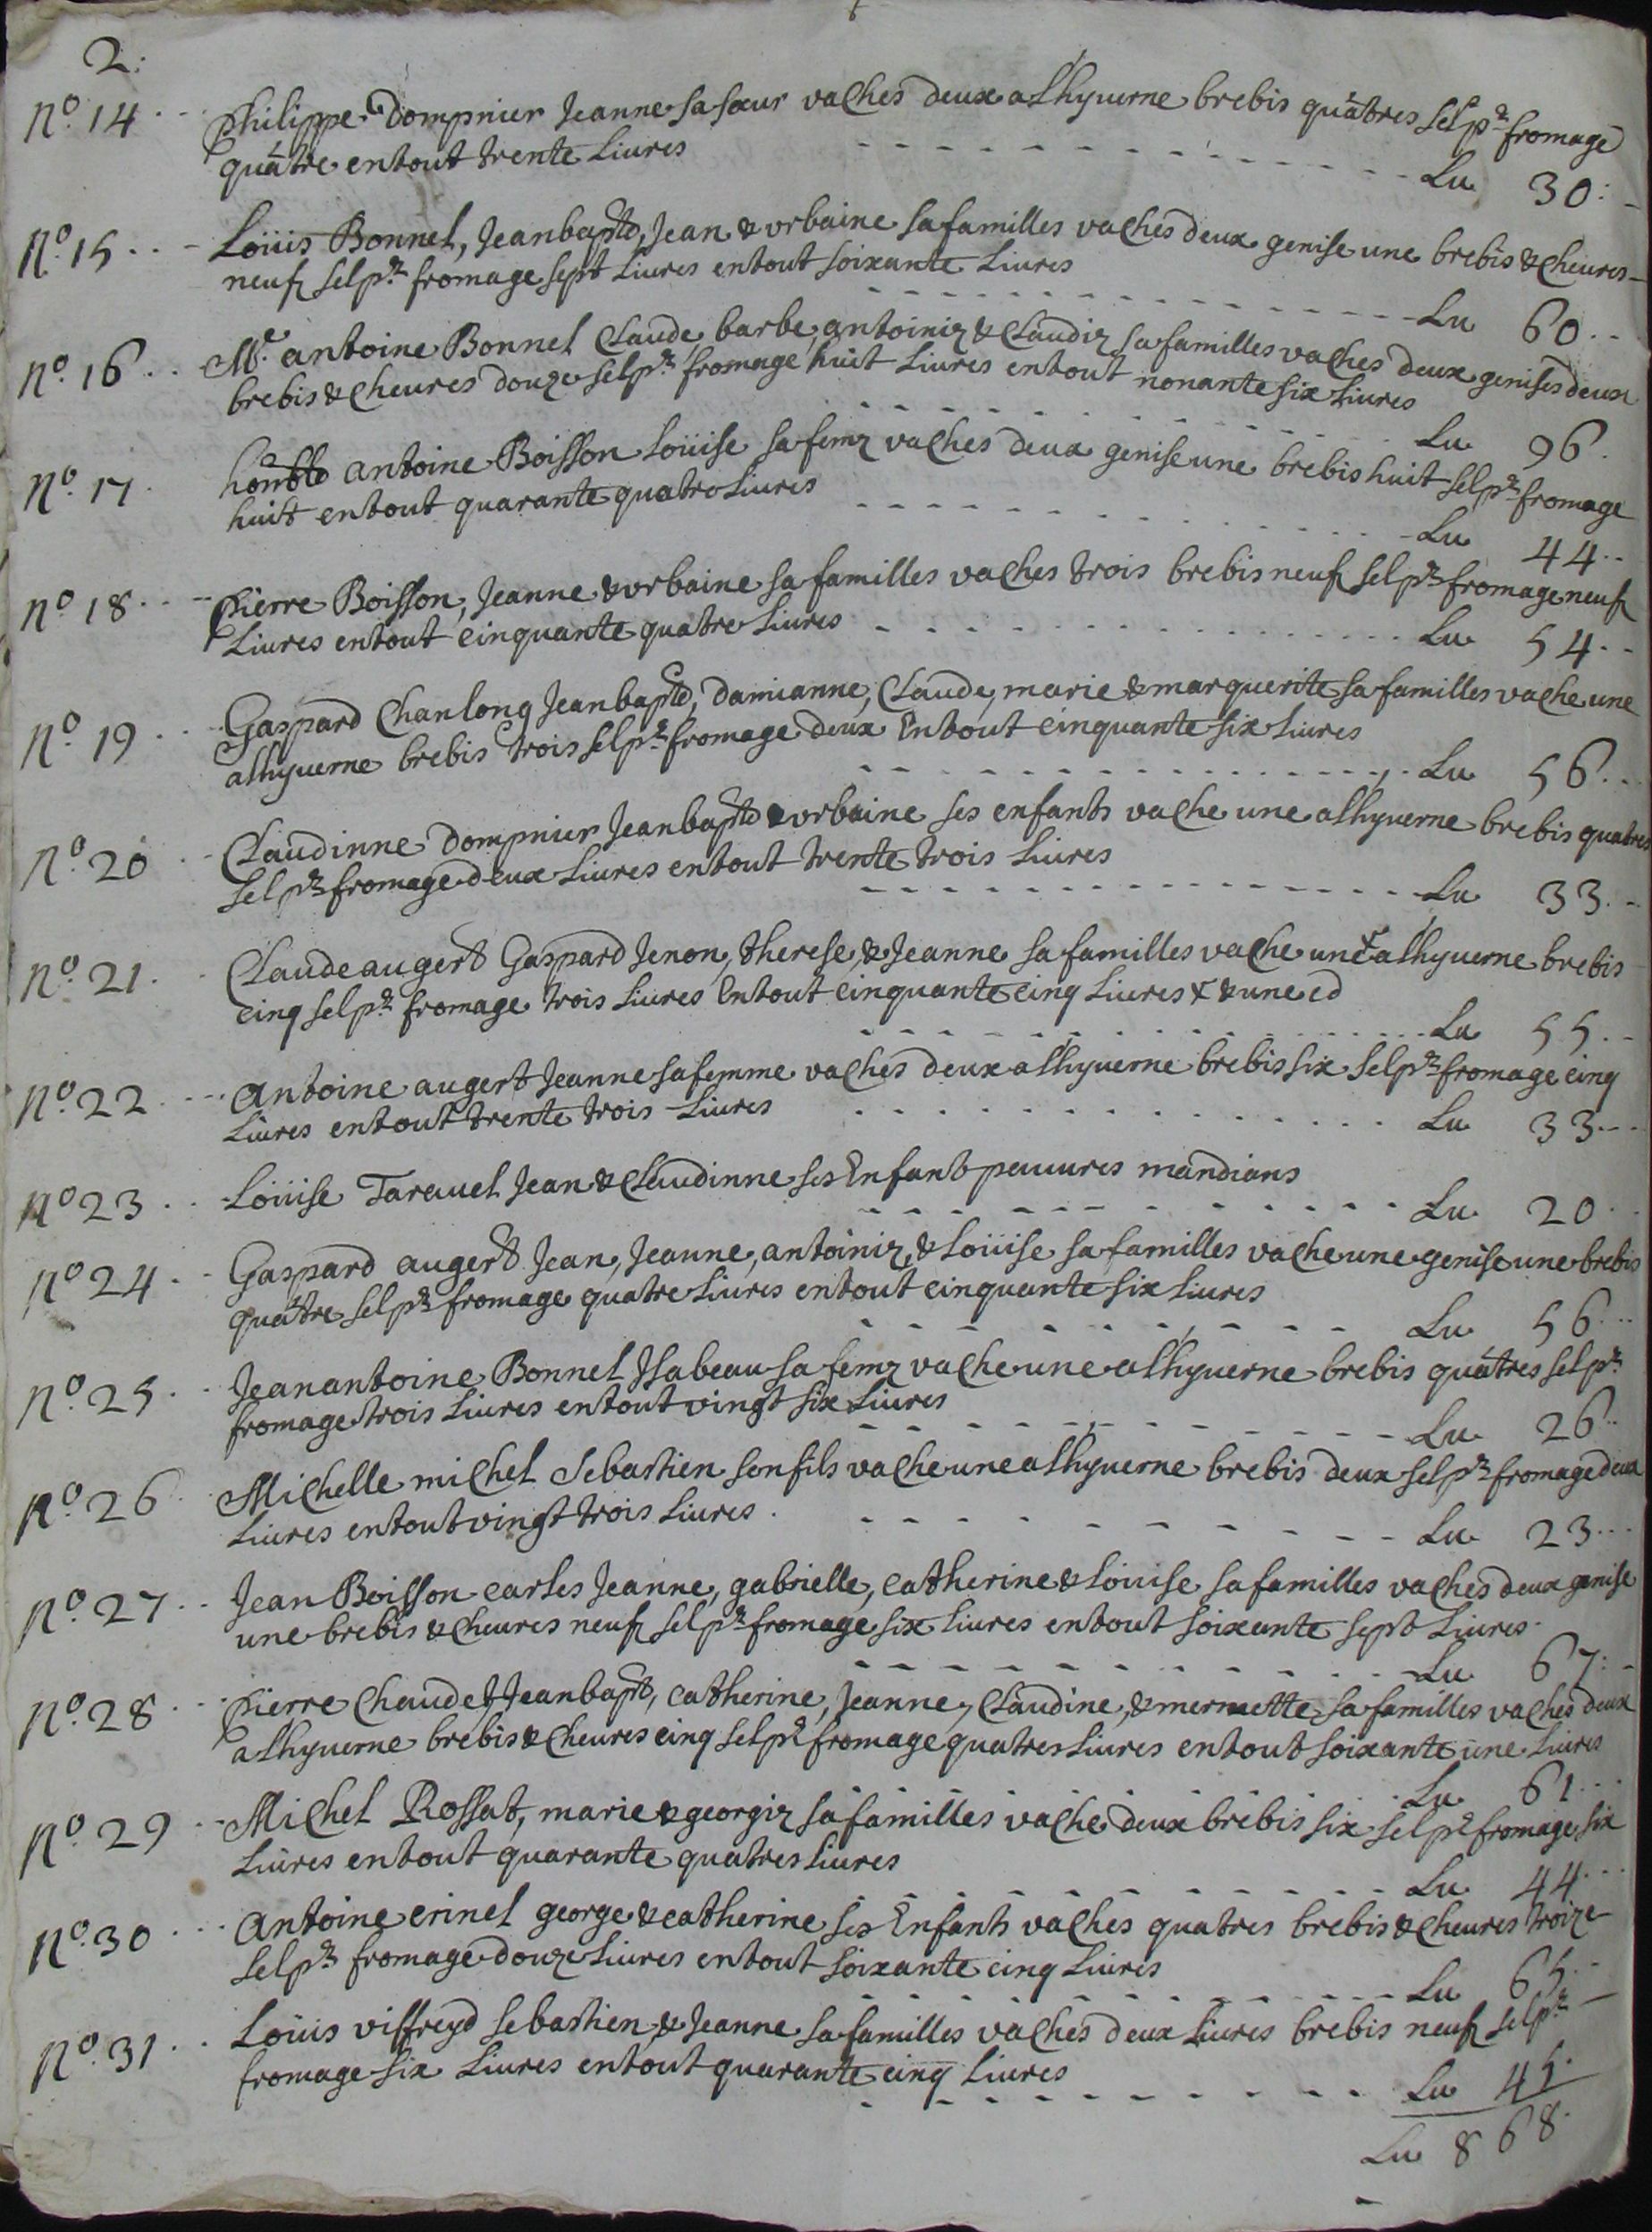 2:
No. 14 philippe Dompnier Jeanne sa sœur vaches deux a lhyuerne brebis quatres sel pr fromage
quatre en tout trente Liures Lu 30
No. 15 Loüis Bonnel, Jeanbapte, Jean & vrbaine sa familles vaches deux genise une brebis & cheures
neuf sel pr fromage sept Liures en tout soixante Liures Lu 60
No. 16 Me. antoine Bonnel Claude, barbe, antoinie, & Claudie sa familles vaches deux genises deux
brebis & cheures douze sel pr fromage huit Liures en tout nonante six Liures
Lu 96
No. 17 honble antoine Boisson Loüise sa feme vaches deux genise une brebis huit sel pr fromage
huit en tout quarante quatre Liures Lu 44
No. 18 pierre Boisson, Jeanne & vrbaine sa familles vaches trois brebis neuf sel pr fromage neuf
Liures en tout cinquante quatre Liures Lu 54
No. 19 Gaspard Chanlong Jeanbapte, Damianne, Claude, marie & marguerite sa familles vache une
a lhyuerne brebis trois sel pr fromage deux En tout cinquante six Liures
Lu 56
No. 20 Claudinne Dompnier Jeanbapte & vrbaine ses enfants vache une a lhyuerne brebis quatres
sel pr fromage deux Liures en tout trente trois Liures Lu 33
No. 21 Claude augert Gaspard Jenon, therese, & Jeanne sa familles vache une + a lhyuerne brebis
cinq sel pr fromage trois Liures En tout cinquante cinq Liures + & une ed
Lu 55
No. 22 antoine augert Jeanne sa femme vaches deux a lhyuerne brebis six sel pr fromage cinq
Liures en tout trente trois Liures Lu 33
No 23 Loüise Tarauel Jean & Claudinne ses Enfant pauures mandians
Lu 20
No 24 Gaspard augert Jean, Jeanne, antoinie, & Loüise sa familles vache une genise une brebis
quatre sel pr fromage quatre Liures en tout cinquante six Liures
Lu 56
No. 25 Jean antoine Bonnel Isabeau sa feme vache une a lhyuerne brebis quatres sel pr
fromage trois Liures en tout vingt six Liures Lu 26
No. 26 Michelle michel Sebastien son fils vache une a lhyuerne brebis deux sel pr fromage deux
Liures en tout vingt trois Liures Lu 23
No. 27 Jean Boisson carles Jeanne, gabrielle, catherine & Loüise sa familles vaches deux genise
une brebis & cheures neuf sel pr fromage six Liures en tout soixante sept Liures
Lu 67
No. 28 pierre Chaudet Jeanbapte, catherine, Jeanne, Claudine, & mermette sa familles vaches deux
a lhyuerne brebis & cheures cinq sel pr fromage quatres Liures en tout soixante une Liures
Lu 61
No. 29 Michel Rossat, marie & georgie sa familles vache deux brebis six sel pr fromage six
Liures en tout quarante quatres Liures
Lu 44
No. 30 antoine crinel george & catherine ses Enfants vaches quatres brebis & cheures troize
sel pr fromage douze Liures en tout soixante cinq Liures
Lu 65
No. 31 Loüis viffreyd sebastien, & Jeanne sa familles vaches deux Liures brebis neuf sel pr
fromage six Liures en tout quarante cinq Liures
Lu 45
Lu 868